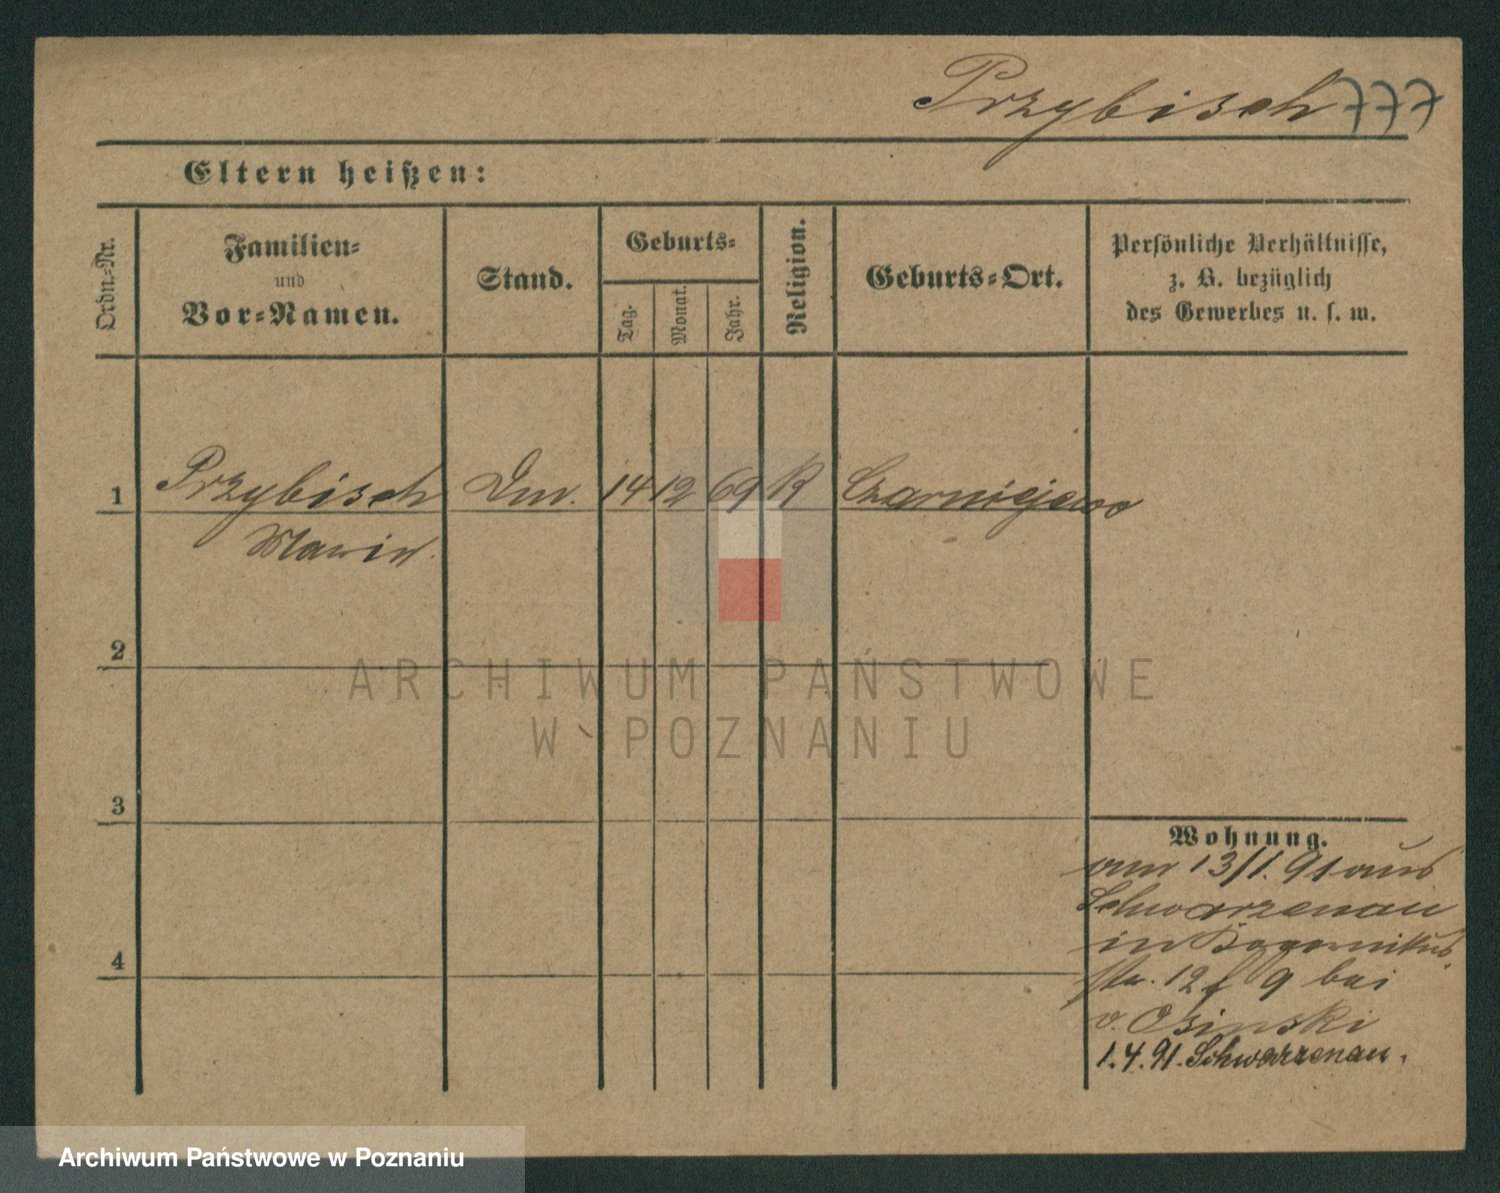 Przybisch 777
Eltern heißen:
Ordn.-Nr.
Familien-
und
Vor-Namen.
Stand.
Geburts-
Tag.
Monat.
Jahr.
Religion.
Geburts-Ort.
Persönliche Verhältnisse,
z. B. bezüglich
des Gewerbes u. s. w.
1 Przybisch 14 12 69 K Czarniejewo
Maria
2
3
4
Wohnung.
13/1. 91 aus
Schwarzenau
in
str. 12 9 bei
v. Osinski
1.4.91. Schwarzenau.
ARCHIWUM PAŃSTWOWE
W POZNANIU
Archiwum Państwowe w Poznaniu